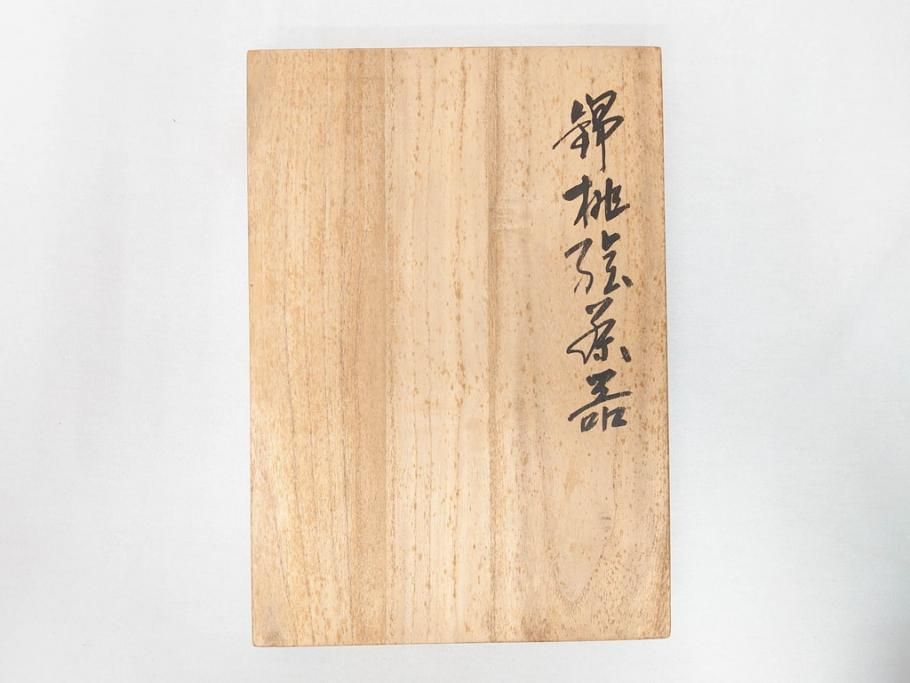 錦桃絵茶器